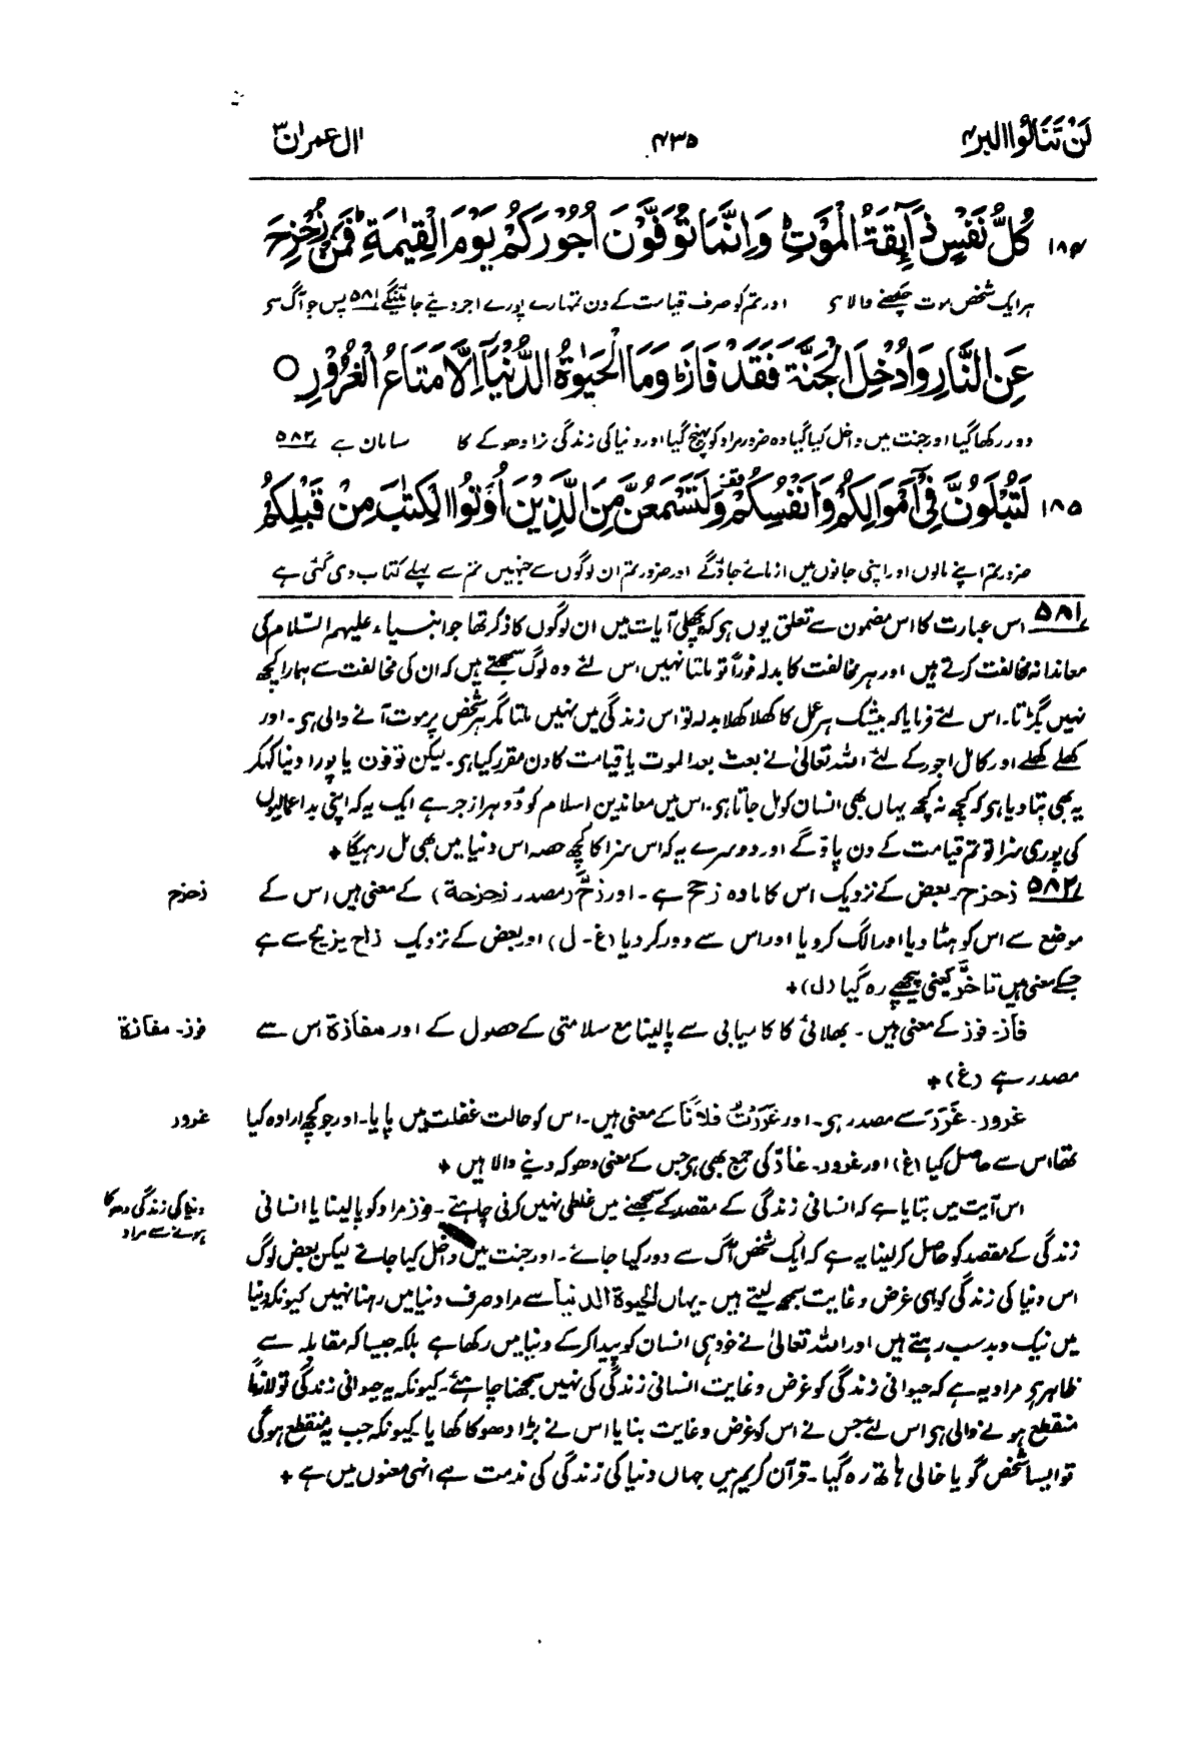 لَنْ تَنَالُوا البر۴ ۴۳۵ اٰل عمرٰن ۳
۱۸۴ كُلُّ نَفْسٍ ذَآئِقَةُ الْمَوْتِ وَاِنَّمَا تُوَفَّوْنَ اُجُوْرَكُمْ يَوْمَ الْقِيٰمَةِ فَمَنْ زُحْزِحَ
ہر ایک شخص موت چکھنے والا ہی اور تم کو صرف قیامت کے دن تمہارے پورے اجر دیئے جائینگے ۵۸۱ پس جو آگ سے
عَنِ النَّارِ وَاُدْخِلَ الْجَنَّةَ فَقَدْ فَازَ وَمَا الْحَيٰوةُ الدُّنْيَآ اِلَّا مَتَاعُ الْغُرُوْرِ ○
دور رکھا گیا اور جنت میں داخل کیا گیا وہ ضرور مراد کو پہنچ گیا اور دنیا کی زندگی نرا دھوکے کا سامان ہے ۵۸۲
۱۸۵ لَتُبْلَوُنَّ فِيْٓ اَمْوَالِكُمْ وَاَنْفُسِكُمْ وَلَتَسْمَعُنَّ مِنَ الَّذِيْنَ اُوْتُوا الْكِتٰبَ مِنْ قَبْلِكُمْ
ضرور تم اپنے مالوں اور اپنی جانوں میں ازمائے جاؤگے اور ضرور تم ان لوگوں سے جنہیں تم سے پہلے کتاب دی گئی ہے
۵۸۱ اس عبارت کا اس مضمون سے تعلق یوں ہی کہ پچھلی آیات میں ان لوگوں کا ذکر تھا جو انبیاء علیہم السّلام کی
معاندانہ مخالفت کرتے ہیں اور ہر مخالفت کا بدلہ فوراً تو ملتا نہیں اس لئے وہ لوگ سمجھتے ہیں کہ ان کی مخالفت سے ہمارا کچھ
نہیں بگڑتا۔ اس لئے فرمایا کہ بیشک ہر عمل کا کھلا کھلا بدلہ تو اس زندگی میں نہیں ملتا مگر ہر شخص پر موت آنے والی ہی۔ اور
کھلے کھلے اور کامل اجور کے لئے اللہ تعالیٰ نے بعث بعد الموت یا قیامت کا دن مقرر کیا ہی۔ لیکن توفون یا پورا دنیا کہکر
یہ بھی بتا دیا ہی کہ کچھ نہ کچھ یہاں بھی انسان کو مل جاتا ہی۔ اس میں معاندین اسلام کو دوہرا زجر ہے ایک یہ کہ اپنی بد اعمالیوں
کی پوری سزا تو تم قیامت کے دن پاؤ گے اور دوسرے یہ کہ اس سزا کا کچھ حصہ اس دنیا میں بھی مل رہیگا +
۵۸۲ زحزح۔ بعض کے نزدیک اس کا مادہ زحح ہے۔ اور زحَّ (مصدر زحزحة) کے معنی ہیں اس کے زحزح
موضع سے اس کو ہٹا دیا اور الگ کر دیا اور اس سے دور کر دیا (غ۔ ل) اور بعض کے نزدیک زاح یزیح سے ہے
جسکے معنی ہیں تاخَّر یعنی پیچھے رہ گیا (ل) +
فاز۔ فوز کے معنی ہیں۔ بھلائی کا کامیابی سے پالینا مع سلامتی کے حصول کے اور مفازة اس سے فوز۔ مفازة
مصدر ہے (غ) +
غرور۔ غَرَرَ سے مصدر ہی۔ اور غَرَرْتُ فلاناً کے معنی ہیں۔ اس کو حالت غفلت میں پایا۔ اور جو کچھ ارادہ کیا غرور
تھا اس سے حاصل کیا (غ) اور غرور۔ غارّ کی جمع بھی ہی جس کے معنی دھوکہ دینے والا ہیں +
اس آیت میں بتایا ہے کہ انسانی زندگی کے مقصد کے سمجھنے میں غلطی نہیں کرنی چاہئے۔ فوز مراد کو پالینا یا انسانی دنیا کی زندگی دھوکا
زندگی کے مقصد کو حاصل کر لینا یہ ہے کہ ایک شخص آگ سے دور کیا جائے۔ اور جنت میں داخل کیا جائے لیکن بعض لوگ ہونے سے مراد
اس دنیا کی زندگی کو ہی غرض و غایت سمجھ لیتے ہیں۔ یہاں الحیوة الدنیا سے مراد صرف دنیا میں رہنا نہیں کیونکہ دنیا
میں نیک و بد سب رہتے ہیں اور اللہ تعالیٰ نے خود ہی انسان کو پیدا کر کے دنیا میں رکھا ہے بلکہ جیسا کہ مقابلہ سے
ظاہر ہی مراد یہ ہے کہ حیوانی زندگی کو غرض و غایت انسانی زندگی کی نہیں سمجھنا چاہئے۔ کیونکہ یہ حیوانی زندگی تو لازماً
منقطع ہونے والی ہی اس لئے جس نے اس کو غرض و غایت بنایا اس نے بڑا دھوکا کھایا کیونکہ جب یہ منقطع ہوگی
تو ایسا شخص گویا خالی ہاتھ رہ گیا۔ قرآن کریم میں جہاں دنیا کی زندگی کی مذمت ہے انہی معنوں میں ہے +